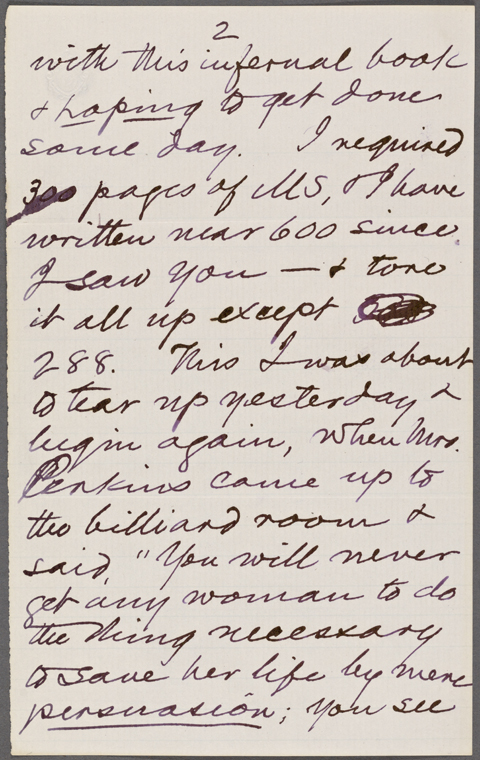 2
with this infernal book
& hoping to get done
some day. I required
300 pages of MS, & I have
written near 600 since
I saw you — & tore
it all up except
288. This I was about
to tear up yesterday &
begin again, when Mrs.
Perkins came up to
the billiard room &
said, "You will never
get any woman to do
the thing necessary
to save her life by mere
persuasion; you see